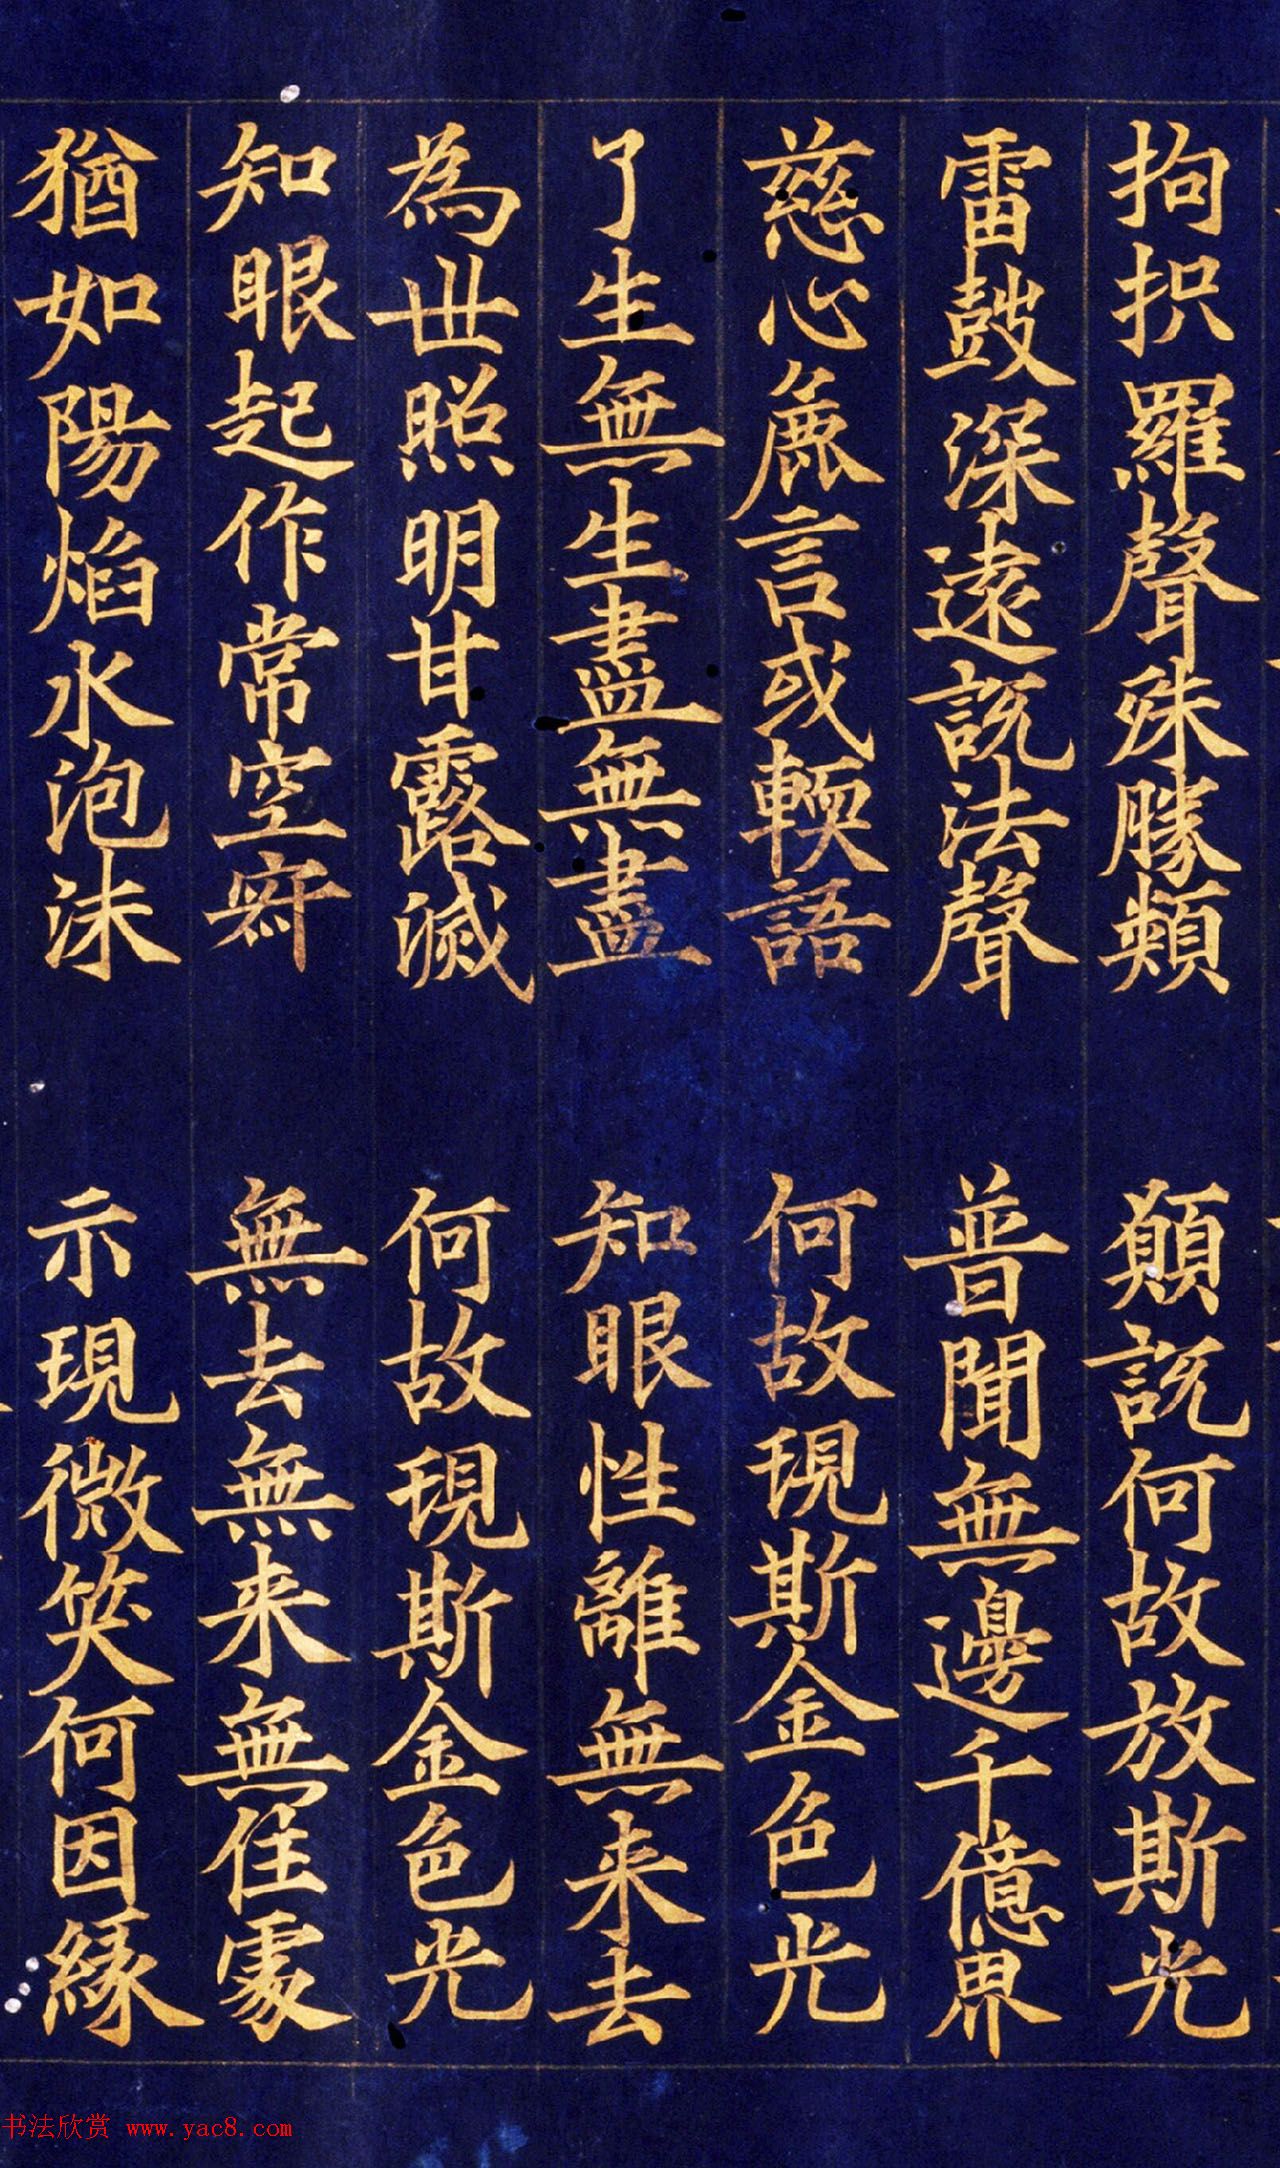 拘抧羅聲殊勝類 願說何故放斯光
雷鼓深遠說法聲 普聞無邊千億界
慈心麁言或輭語 何故現斯金色光
了生無生盡無盡 知眼性離無来去
為世照明甘露滅 何故現斯金色光
知眼起作常空寂 無去無来無住處
猶如陽焰水泡沫 示現微笑何因緣
书法欣赏 www.yac8.com